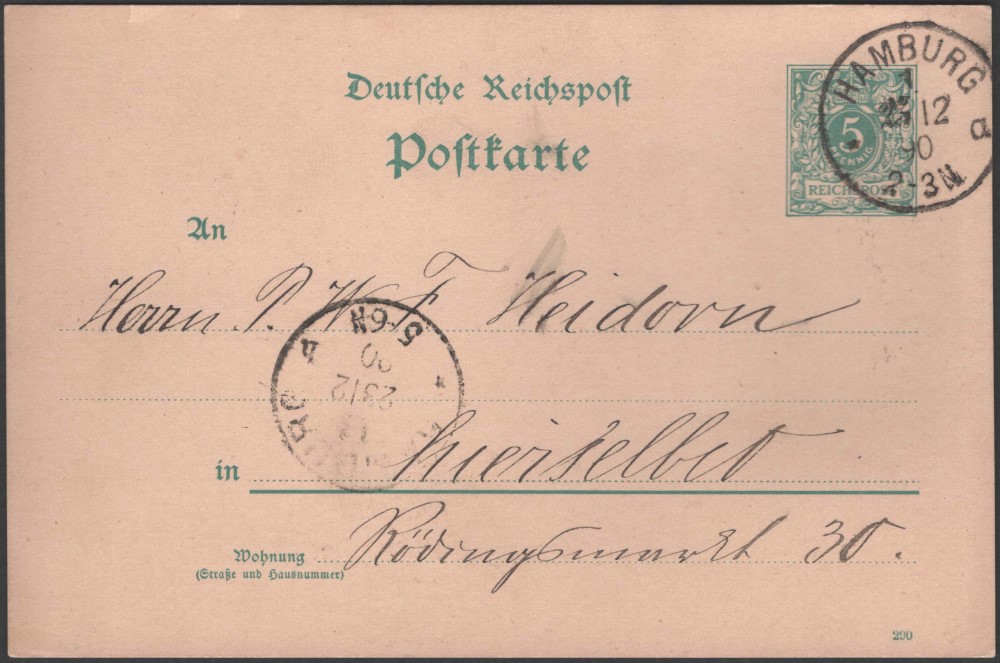 Deutsche Reichspost
Postkarte
5
PFENNIG
REICHSPOST
HAMBURG
1
12
90
2-3N
d
An
Herrn P. W. F. Heidorn
5/-6N
90
23/2
HAMBURG
in hierselbst
Wohnung Rödingsmarkt 30.
(Straße und Hausnummer)
290